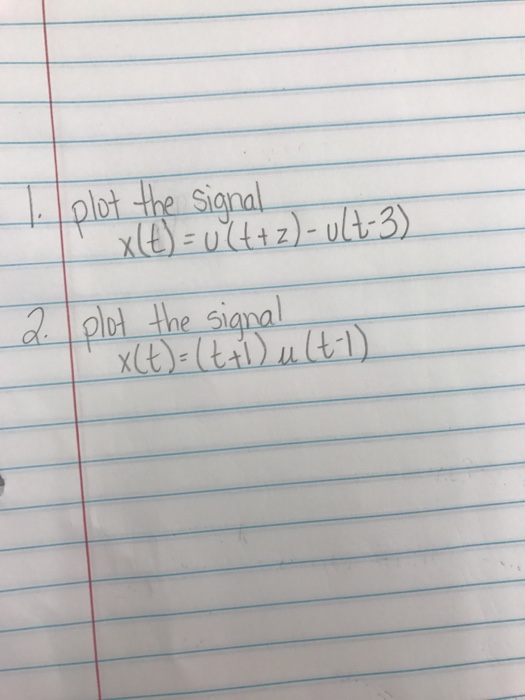 1. plot the signal
x(t) = u(t+z) - u(t-3)
2. plot the signal
x(t) = (t+1) u(t-1)